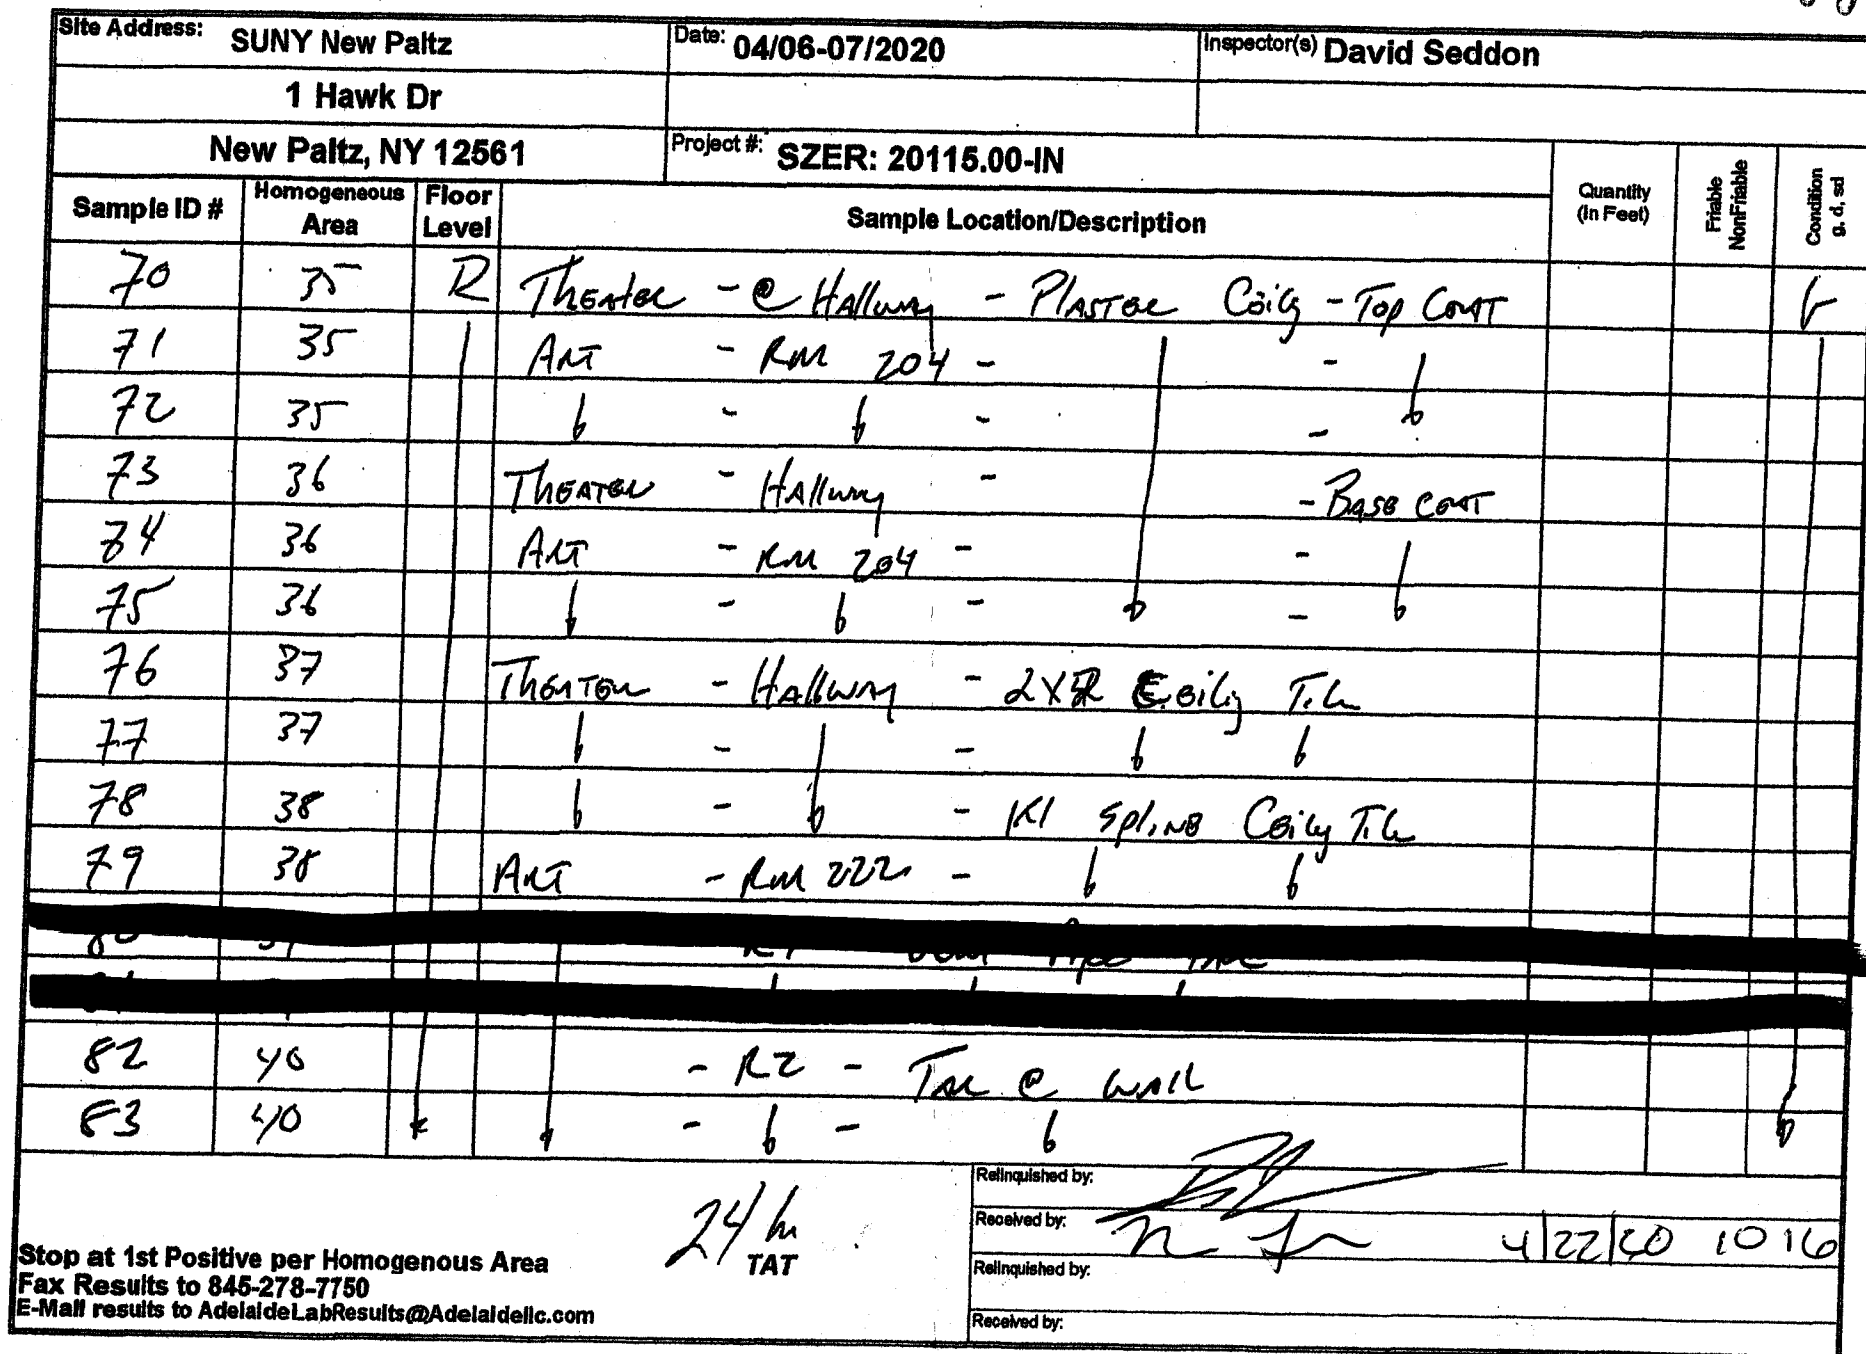 Site Address: SUNY New Paltz Date: 04/06-07/2020 Inspector(s) David Seddon
1 Hawk Dr
New Paltz, NY 12561 Project #: SZER: 20115.00-IN
Sample ID # Homogeneous Area Floor Level Sample Location/Description Quantity (In Feet) Friable NonFriable Condition g, d, sd
70 35 R Theater - @ Hallway - Plaster Ceilg - Top Coat
71 35 Art - Rm 204 - -
72 35 - - -
73 36 Theater - Hallway - - Base Coat
74 36 Art - Rm 204 - -
75 36 - - -
76 37 Theater - Hallway - Ceilig Tile
77 37 - -
78 38 - - 1x1 Spline Ceilg Tile
79 38 Art - Rm 222 -
80
82 40 - R2 - Tar @ wall
83 40 - -
24 hr
TAT
Stop at 1st Positive per Homogenous Area
Fax Results to 845-278-7750
E-Mail results to AdelaideLabResults@Adelaidellc.com
Relinquished by:
Received by: 4/22/20 1016
Relinquished by:
Received by: